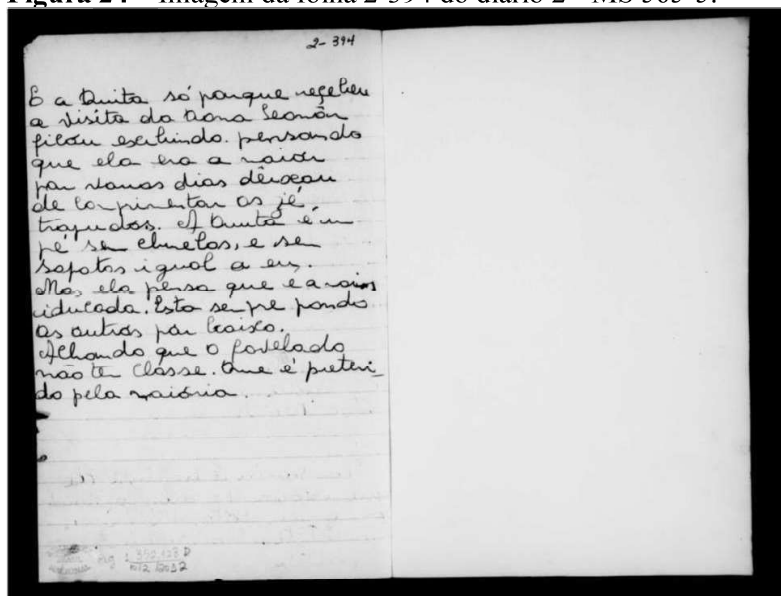 Figura 24 – Imagem da folha 2-394 do diário 2 – MS 565-5.
2- 394
E a Quita só porque reçebeu
a visita da Dona Leonôr
ficou exibindo. pensando
que ela era a maior
por várias dias dêixou
de comprimentar os jé
trapudos. A Quita é um
pé sem chinelos, e sem
sapatos igual a eu,
Mas, ela pensa que é a mais
iducada. Esta sempre pondo
os outros por baixo.
Achando que o favelado
não tem classe. Que é preteri_
do pela maiória.